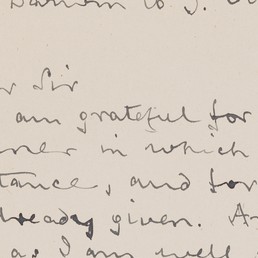 Darwin to J.
Sir
am grateful for
ner in which
tance, and for
lready given. A
as I am well